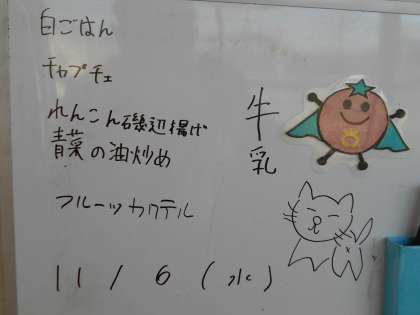 白ごはん
チャプチェ
れんこん磯辺揚げ
青菜の油炒め
フルーツカクテル
牛乳
11/6(水)